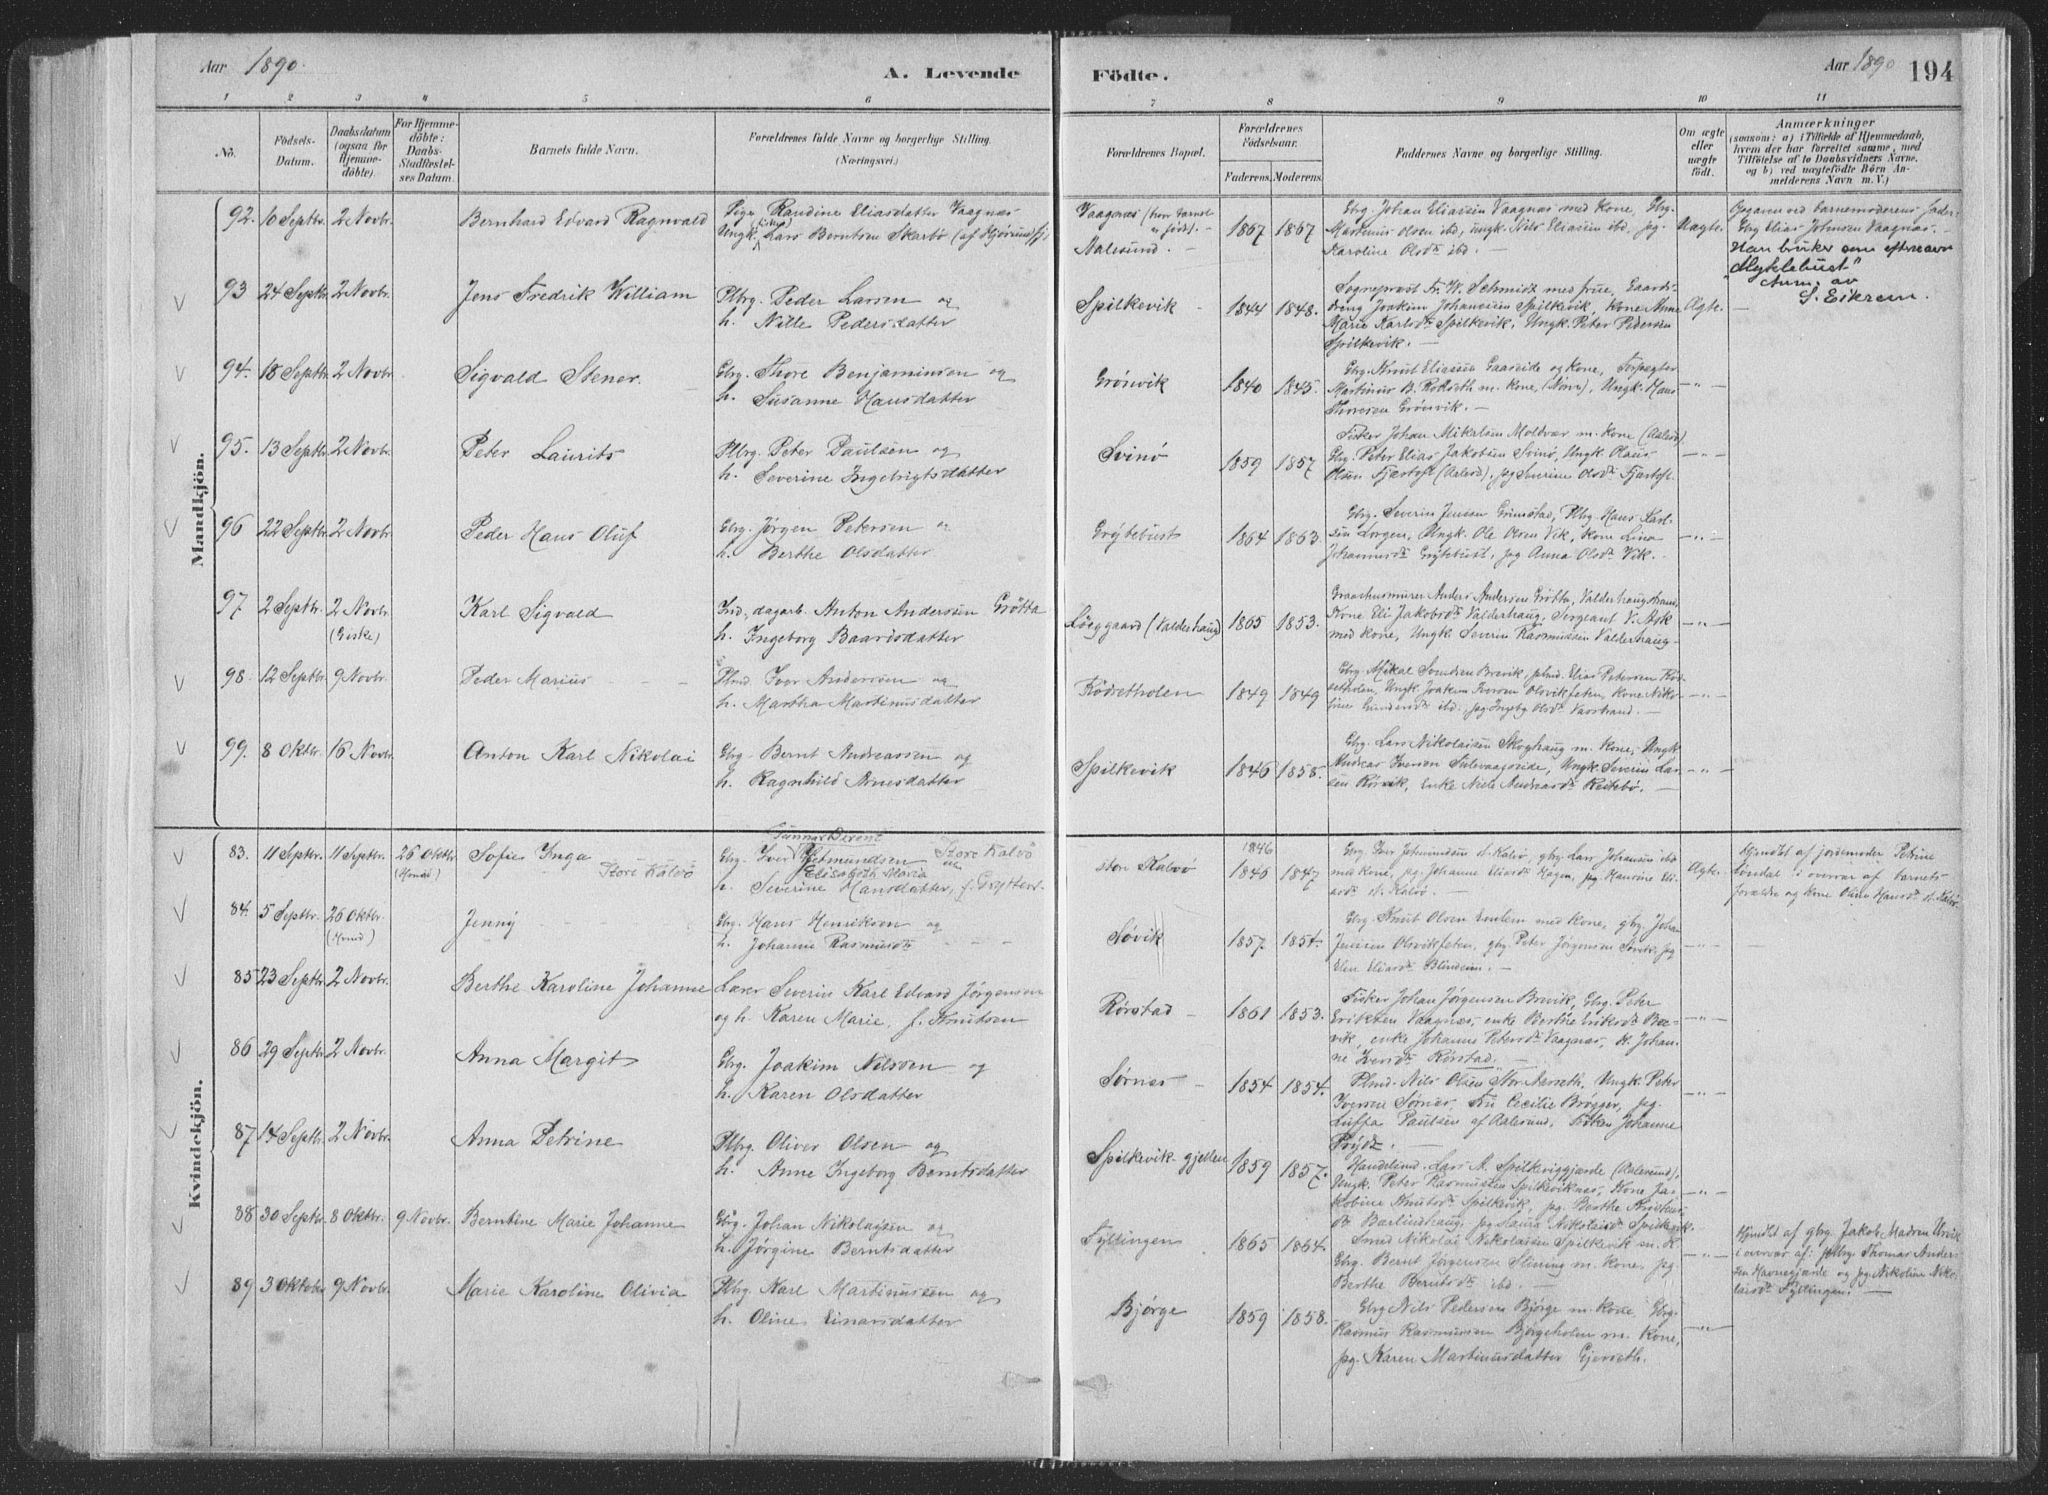 Aar 1890.
A. Levende
Födte.
Aar 1890
194
1 2 3 4 5 6 7 8 9 10 11
No.
Födsels-
Datum.
Daabsdatum
(ogsaa for
Hjemme-
döbte).
For Hjemme-
döbte:
Daabs-
Stadfæstel-
ses Datum.
Barnets fulde Navn.
Forældrenes fulde Navne og borgerlige Stilling.
(Næringsvei.)
Forældrenes Bopæl.
Forældrenes
Födselsaar.
Faderens. Moderens.
Faddernes Navne og borgerlige Stilling.
Om ægte
eller
uægte
födt.
Anmærkninger
(saasom: a) i Tilfælde af Hjemmedaab,
hvem der har forrettet samme, med
Tilföielse af to Daabsvidners Navne,
og b) ved uægtefödte Börn An-
melderens Navn m. V.)
Mandkjön.
92. 10 Septbr. 2 Novbr. Bernhard Edvard Ragnvald
Pige Randine Eliasdatter Vaagnæs
Ungk. Lars Berntsen Skarbö (af Hjörundfj)
Vaagenæs (hvor barnet
er född).
Aalesund. 1867 1867
Gbrg. Johan Eliassen Vaagnæs med Kone, Gbrg.
Martinus Olsen ibd, Ungk. Nils Eliassen ibd, Pig.
Karoline Olsdr ibd.
Uægte.
Opgaven ved barnemoderens fader
Gbrg Elias Johnsen Vaagnæs.
Han bruker som efternavn
"Myklebust"
Anm. av
S. Eikrem.
93 24 Septbr. 2 Novbr. Jens Fredrik William
Plbrg. Peder Larsen og
h. Nille Pedersdatter
Spilkevik 1844 1848.
Sogneprest Fr. W. Schmidt med frue, Gaard-
dreng Joakim Johansen Spilkevik, Kone Anne
Marie Karlsdr Spilkevik, Ungk. Peter Pedersen
Spilkevik.
Ægte.
94. 18 Septbr. 2 Novbr. Sigvald Stener.
Gbrg. Thore Benjaminsen og
h. Susanne Hansdatter
Grönvik 1840 1845.
Gbrg. Knut Eliassen Gaaseide og Kone, Forpagter
Martinus B. Rokseth m. Kone, Ungk. Hans
Thoresen Grönvik.
95. 13 Septbr. 2 Novbr. Peter Laurits
Plbrg. Peter Paulsen og
h. Severine Ingebrigtsdatter
Svinö 1859 1857
Fisker Johan Mikalsen Moldvær m. Kone (Aalesd)
Gbg. Peter Elias Jakobsen Svinö, Ungk. Olaus
Olsen Fjærtoft (Aalesd), Pg Severine Olsdr Fjærtoft.
96 22 Septbr. 2 Novbr. Peder Hans Oluf
Gbrg. Jörgen Petersen og
h. Berthe Olsdatter
Grytebust 1864 1863.
Gbrg. Severin Jenssen Grimstad, Plbg. Hans Karl-
sen Lorgen, Ungk. Ole Olsen Vik, Kone Lina
Johannesdr Grytebust, pg Anna Olsdr Vik.
97 2 Septbr. 2 Novbr.
(Giske)
Karl Sigvald
Ind. dagarb. Anton Andersen Grötta
h. Ingeborg Baardsdatter
Löeggaard (Valderhaug) 1865 1853.
Graasteinsmurer Anders Andersen Grötta, Valderhaugstrand,
Kone Eli Jakobsdr Valderhaug, Sergeant V. Ask
med Kone, Ungk. Severin Rasmussen Valderhaug
98. 12 Septbr. 9 Novbr. Peder Marius
Plmd. Iver Andersen og
h. Martha Martinusdatter
Ködretholen 1849 1849
Gbrg. Mikal Svendsen Brevik, plmd. Elias Petersen Köd-
retholen, Ungk. Joakim Iversen Olsvikfeten, Kone Niko-
line Gundersdr ibd, pg Ingebg Olsdr Vasstrand.
99. 8 Oktbr. 16 Novbr. Anton Karl Nikolai
Gbrg. Bernt Andreassen og
h. Ragnhild Arnesdatter
Spilkevik 1846 1858.
Gbrg. Lars Nikolaisen Skoghaug m. Kone, Ungk
Andreas Iversen Sulevaagseide, Ungk. Severin Lar-
sen Rörvik, enke Nille Andreasdr Restebö.
Kvindekjön.
83. 11 Septbr. 11 Septbr. 26 Oktbr.
Sofie Inga
Store Kalvö
Gunnar Berent
Gbrg. Iver Jetmundsen og Store Kalvö
Elisabeth Maria
h. Severine Hansdatter, f. Gryttest.
stor Kalvö 1846
1846 1847
Gbrg. Iver Jetmundsen st. Kalvö, gbrg Lars Johansen ibd
med Kone, pg. Johanne Eliasdr Hagen, pg. Hansine Eli-
asdr st. Kalvö.
Ægte.
Hjmdöbt af jordemoder Petrine
Löndal i overvær af barnets
forældre og kone Oline Hansdr st. Kalvö
84. 5 Septbr. 26 Oktbr. Jenny
Gbrg. Hans Henriksen og
h. Johanne Rasmusdr
Sövik 1857. 1854.
Gbrg. Knut Olsen Emlem med Kone, gbrg. Johan
Jenssen Olsvikfeten, gbrg. Peter Jörgensen Sövik, pg
Elen Eliasdr Blindeim.
85 23 Septbr. 2 Novbr. Berthe Karoline Johanne
Lærer Severin Karl Edvard Jörgensen
og h. Karen Marie, f. Knutsen
Rörstad 1861 1853.
Fisker Johan Jörgensen Brevik, Gbrg. Peter
Eriksen Vaagnæs, enke Berthe Eriksdr Bre-
vik, enke Johanne Petersdr Vaagnæs, K. Johan-
ne Iversdr Rörstad.
86 29 Septbr 2 Novbr. Anna Margit
Gbrg. Joakim Nilssen og
h. Karen Olsdatter
Sörnes 1854 1854.
Plmd. Nils Olsen Stor Aarseth, Ungk. Peter
Iversen Sörnes, Frk Cecilie Brögger, pg.
Luffa Paulsen af Aalesund, Fröken Johanne
Prydz.
87 14 Septbr. 2 Novbr. Anna Petrine
Plbrg. Oliver Olsen og
h. Anne Ingeborg Berntsdatter
Spilkevik-gjellen 1859 1857.
Handelsmd. Lars A. Spilkeviggjærde (Aalesund),
Ungk. Peter Rasmussen Spilkeviknes, Kone Ja-
kobine Knutsdr Spilkevik, pg. Berthe Knudsens
dr Barlindhaug, pg Laura Nikolaisdr Spilkevik
88 30 Septbr 8 Oktbr. 9 Novbr. Berntine Marie Johanne
Gbrg. Johan Nikolaisen og
h. Jörgine Berntsdatter
Fyllingen 1865 1864.
Smed Nikolai Nikolaisen Spilkevik m. K.
Gbrg. Bernt Jörgensen Slinning m. Kone, pg.
Berthe Berntsdr ibd.
Hjmdöbt af gbrg. Jakob Madsen Urvik
i overvær af: plbrg. Thomas Ander-
sen Havnegjærde og pg Nikoline Niko-
laisdr Fyllingen.
89 3 Oktober 9 Novbr. Marie Karoline Olivia
Plbrg. Karl Martinussen og
h. Oline Einarsdatter
Bjørge 1859 1858.
Gbrg Nils Pedersen Bjørge m. Kone, Gbrg.
Rasmus Rasmussen Bjørgeholm m. Kone,
pg. Karen Martinusdatter Gjerseth.